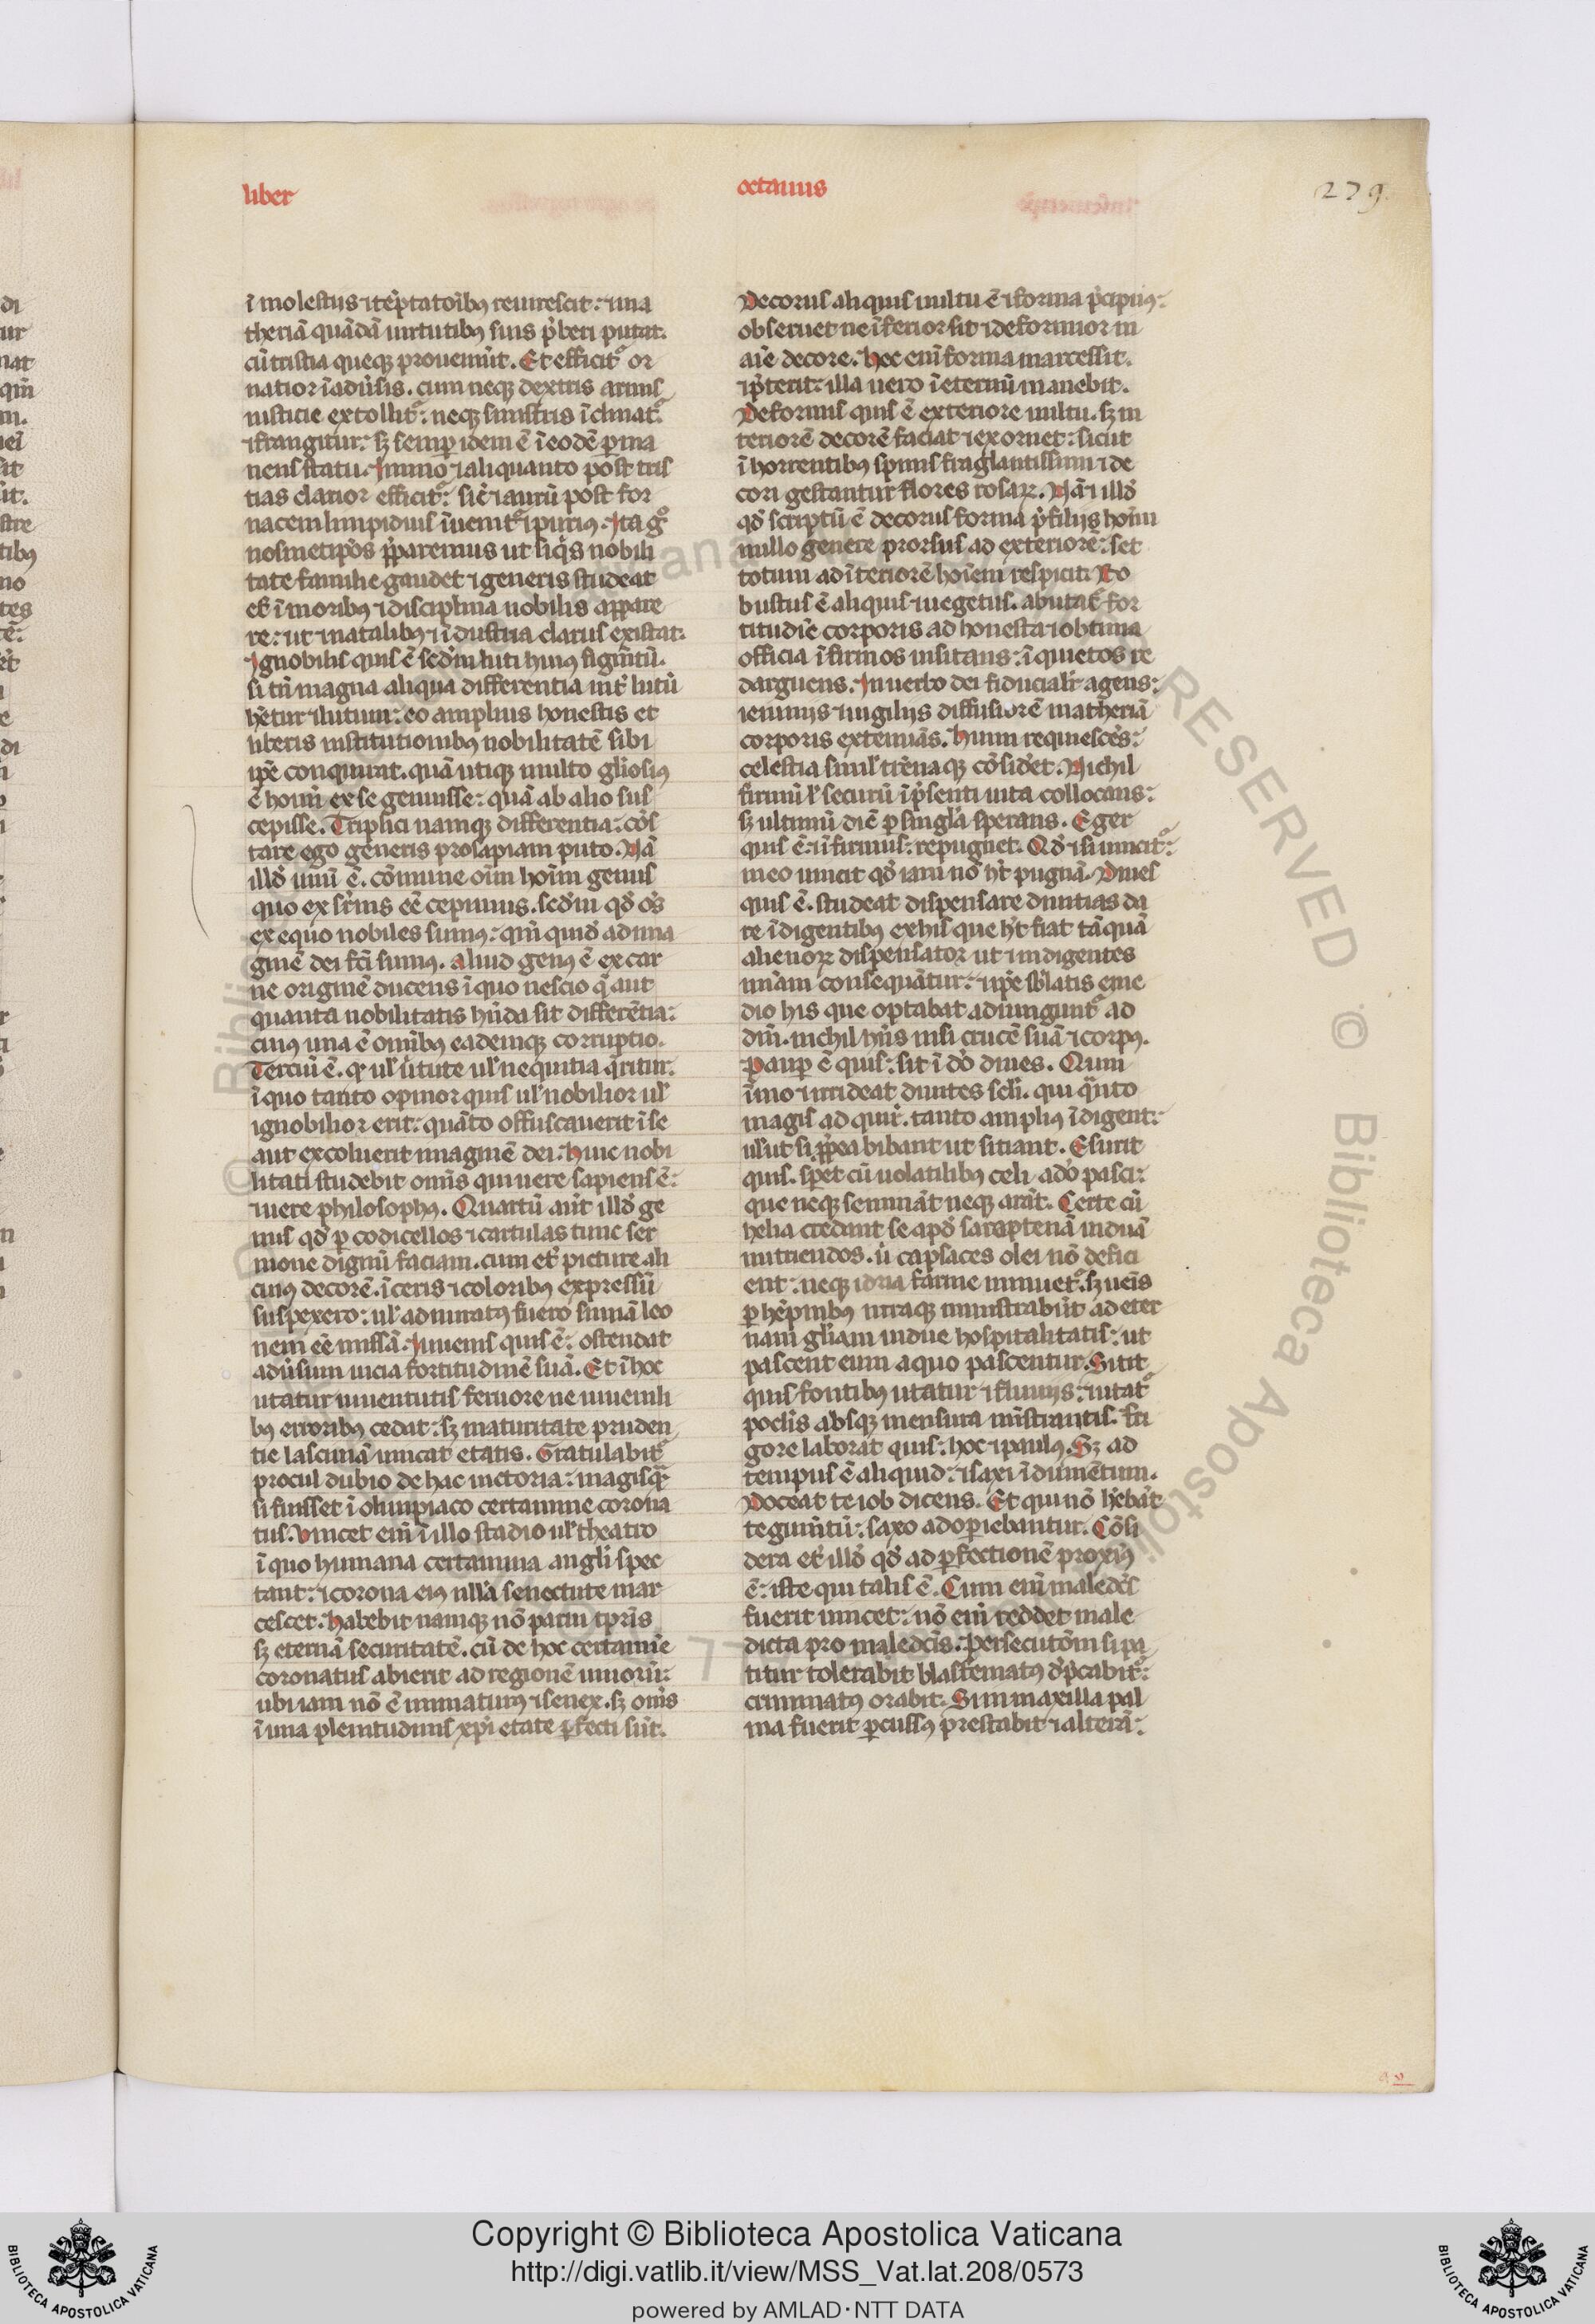 liber
octauus
279.
ī molestiis ⁊ tēptatoībꝰ reuirescit: ⁊ ma
theriā quādā uirtutibꝰ suis p̄beri putat.
cū tristia queqꝫ proueniūt. Et efficitᷣ or
natior ī adūsis. cum neqꝫ dextris armis
iusticie extollitᷣ: neqꝫ sinistris īclinatᷣ.
⁊ frangitur: sꝫ semꝑ idem ē ī eodē ꝑma
nens statu. Immo ⁊ aliquanto post tris
tias clarior efficitᷣ: sic̄ ⁊ aurū post for
nacem limpidius īuenitᷣ ⁊ puriꝰ. Ita gͦ
nosmetip̄os p̄paremus ut siq̄s nobili
tate familie gaudet ⁊ generis studeat
et̄ ī moribꝰ ⁊ disciplina nobilis appare
re: ut ī natalibꝰ ⁊ īdustria clarus existat.
Ignobilis quis ē sed̄m luti huiꝰ figm̄tū.
si tn̄ magna aliqua differentia int̄ lutū
h̄etur ⁊ lutum: eo amplius honestis et
liberis institutionibꝰ nobilitatē sibi
ip̄e conquirat. quā utiqꝫ multo gl̄iosiꝰ
ē homī ex se genuisse: quā ab alio sus
cepisse. Triplici namqꝫ differentia: cōs
tare ego generis prosapiam puto. Nā
illd̄ unū ē. cōmune oīm hoīm genus
quo ex s̄r̄ius eē cepimus. sed̄m qd̄ oēs
ex equo nobiles sumꝰ: qm̄ quid̄ ad ima
ginē dei fc̄i sumꝰ. aliud genꝰ ē ex car
ne originē ducens ī quo nescio q̄ aut
quanta nobilitatis hn̄da sit differētia:
cuiꝰ una ē om̄ibꝰ eademqꝫ corruptio.
Terciū ē. qͦ ul̓ ūtute ul̓ nequitia q̄ritur:
ī quo tanto opinor quis ul̓ nobilior ul̓
ignobilior erit: quāto offuscauerit ī se
aut excoluerit imaginē dei. Huic nobi
litati studebit om̄is qui uere sapiens ē:
⁊ uere philosophꝰ. Quartū aūt illd̄ ge
nus qd̄ ꝑ codicellos ⁊ cartulas tunc ser
mone dignū faciam. cum et̄ picture ali
cuiꝰ decorē. ī ceris ⁊ coloribꝰ expressū
suspexero: ul̓ admiratꝰ fuero simiā leo
nem eē missā. Iuuenis quis ē: ostendat
adūsum uicia fortitudinē suā. Et ī hoc
utatur iuuentutis feruore ne iuuenili
bꝰ erroribꝰ cedat: sꝫ maturitate pruden
tie lasciuiā uincat etatis. Gratulabitᷣ
procul dubio de hac uictoria: magisqᷓ
si fuisset ī olimpiaco certamine corona
tus. Vincet eī ī illo stadio ul̓ theatro
ī quo humana certamina angl̓i spec
tant: ⁊ corona eiꝰ nulla senectute mar
cescet: habebit namqꝫ nō parui tp̄ris
sꝫ eternā securitatē. cū de hoc certamīe
coronatus abierit ad regionē uiuorū:
ubi iam nō ē immaturus ⁊ senex. sꝫ om̄s
ī una plenitudinis xp̄i etate ꝑfecti sūt.
Decorus aliquis uultu ē ⁊ forma p̄cipuꝰ:
obseruet ne īferior sit ⁊ deformior in
aīe decore. Hec enī forma marcessit.
⁊ p̄terit: illa uero ī eternū manebit.
Deformis quis ē exteriore uultu. sꝫ in
teriorē decorē faciat ⁊ exornet: sicut
ī horrentibꝰ spinis fraglantissimi ⁊ de
cori gestantur flores rosaꝝ. Nā ⁊ illd̄
qd̄ scriptū ē decorus forma p̄ filijs hoīm
nullo genere prorsus ad exteriorē: set
totum ad īteriorē hoīem respicit. Ro
bustus ē aliquis ⁊ uegetus. abutatᷣ for
titudīe corporis ad honesta ⁊ obtima
officia īfirmos uisitans: īquietos re
darguens. In uerbo dei fiducialit̄ agens:
ieiunijs ⁊ uigilijs diffusiorē matheriā
corporis exteniās. Humi requiescēs:
celestia simul̓ tr̄renaqꝫ cōsid̄et. Nichil
firmū l̓ securū ī p̄senti uita collocans:
sꝫ ultimū diē ꝑ singl̓a sperans. Eger
quis ē: ⁊ īfirmus: repugnet. Qd̄ ⁊ si uincitᷣ:
meo uincit qd̄ iam nō h̄t pugnā. Diues
quis ē. studeat dispensare diuitias da
re īdigentibꝰ ex his que h̄t fiat tāquā
alienoꝝ dispensator ut ⁊ indigentes
⁊ ip̄e sb̄latis e me
dio his que optabat adiungūtᷣ ad
dm̄. nichil hn̄s nisi crucē suā ⁊ corpꝰ.
Pauꝑ ē quis: sit ī dō diues. Quin
īmo ⁊ irrideat diuites sc̄li. qui qᷓnto
magis adquir̄. tanto ampliꝰ īdigent:
ul̓ ut si p̄pea bibant ut sitiant. Esurit
quis. speret cū uolatilibꝰ celi a dō pasci:
que neqꝫ semināt neqꝫ arāt. Certe cū
helia credant se apd̄ saraptenā uiduā
nutriendos. ū capsaces olei nō defici
ent: neqꝫ idria farine minuetᷣ. sꝫ ueīs
utraqꝫ ministrabūt ad eter
nam gl̄iam uidue hospitalitatis: ut
pascent eum a quo pascentur. Sitit
quis fontibꝰ utatur ⁊ fluuijs: ⁊ utatᷣ
poclis absqꝫ mensura mīstrantis. Fri
gore laborat quis: hoc ⁊ paulꝰ. Sꝫ ad
tempus ē aliquid: ⁊ saxi īdumētum.
Doceat te iob dicens. Et qui nō h̄ebāt
tegumtū: saxo adoꝑiebantur. Cōsi
dera et̄ illd̄ qd̄ ad ꝑfectionē proxiū
ē: iste qui talis ē. Cum enī maledc̄s
fuerit uincet: nō enī reddet male
dicta pro maledc̄is. Persecutōm si pa
titur tolerabit blasfematꝰ dp̄cabitᷣ:
criminatꝰ orabit. Si in maxilla pal
ma fuerit ꝑcussꝰ prestabit ⁊ alterā:
Copyright © Biblioteca Apostolica Vaticana
http://digi.vatlib.it/view/MSS_Vat.lat.208/0573
powered by AMLAD·NTT DATA